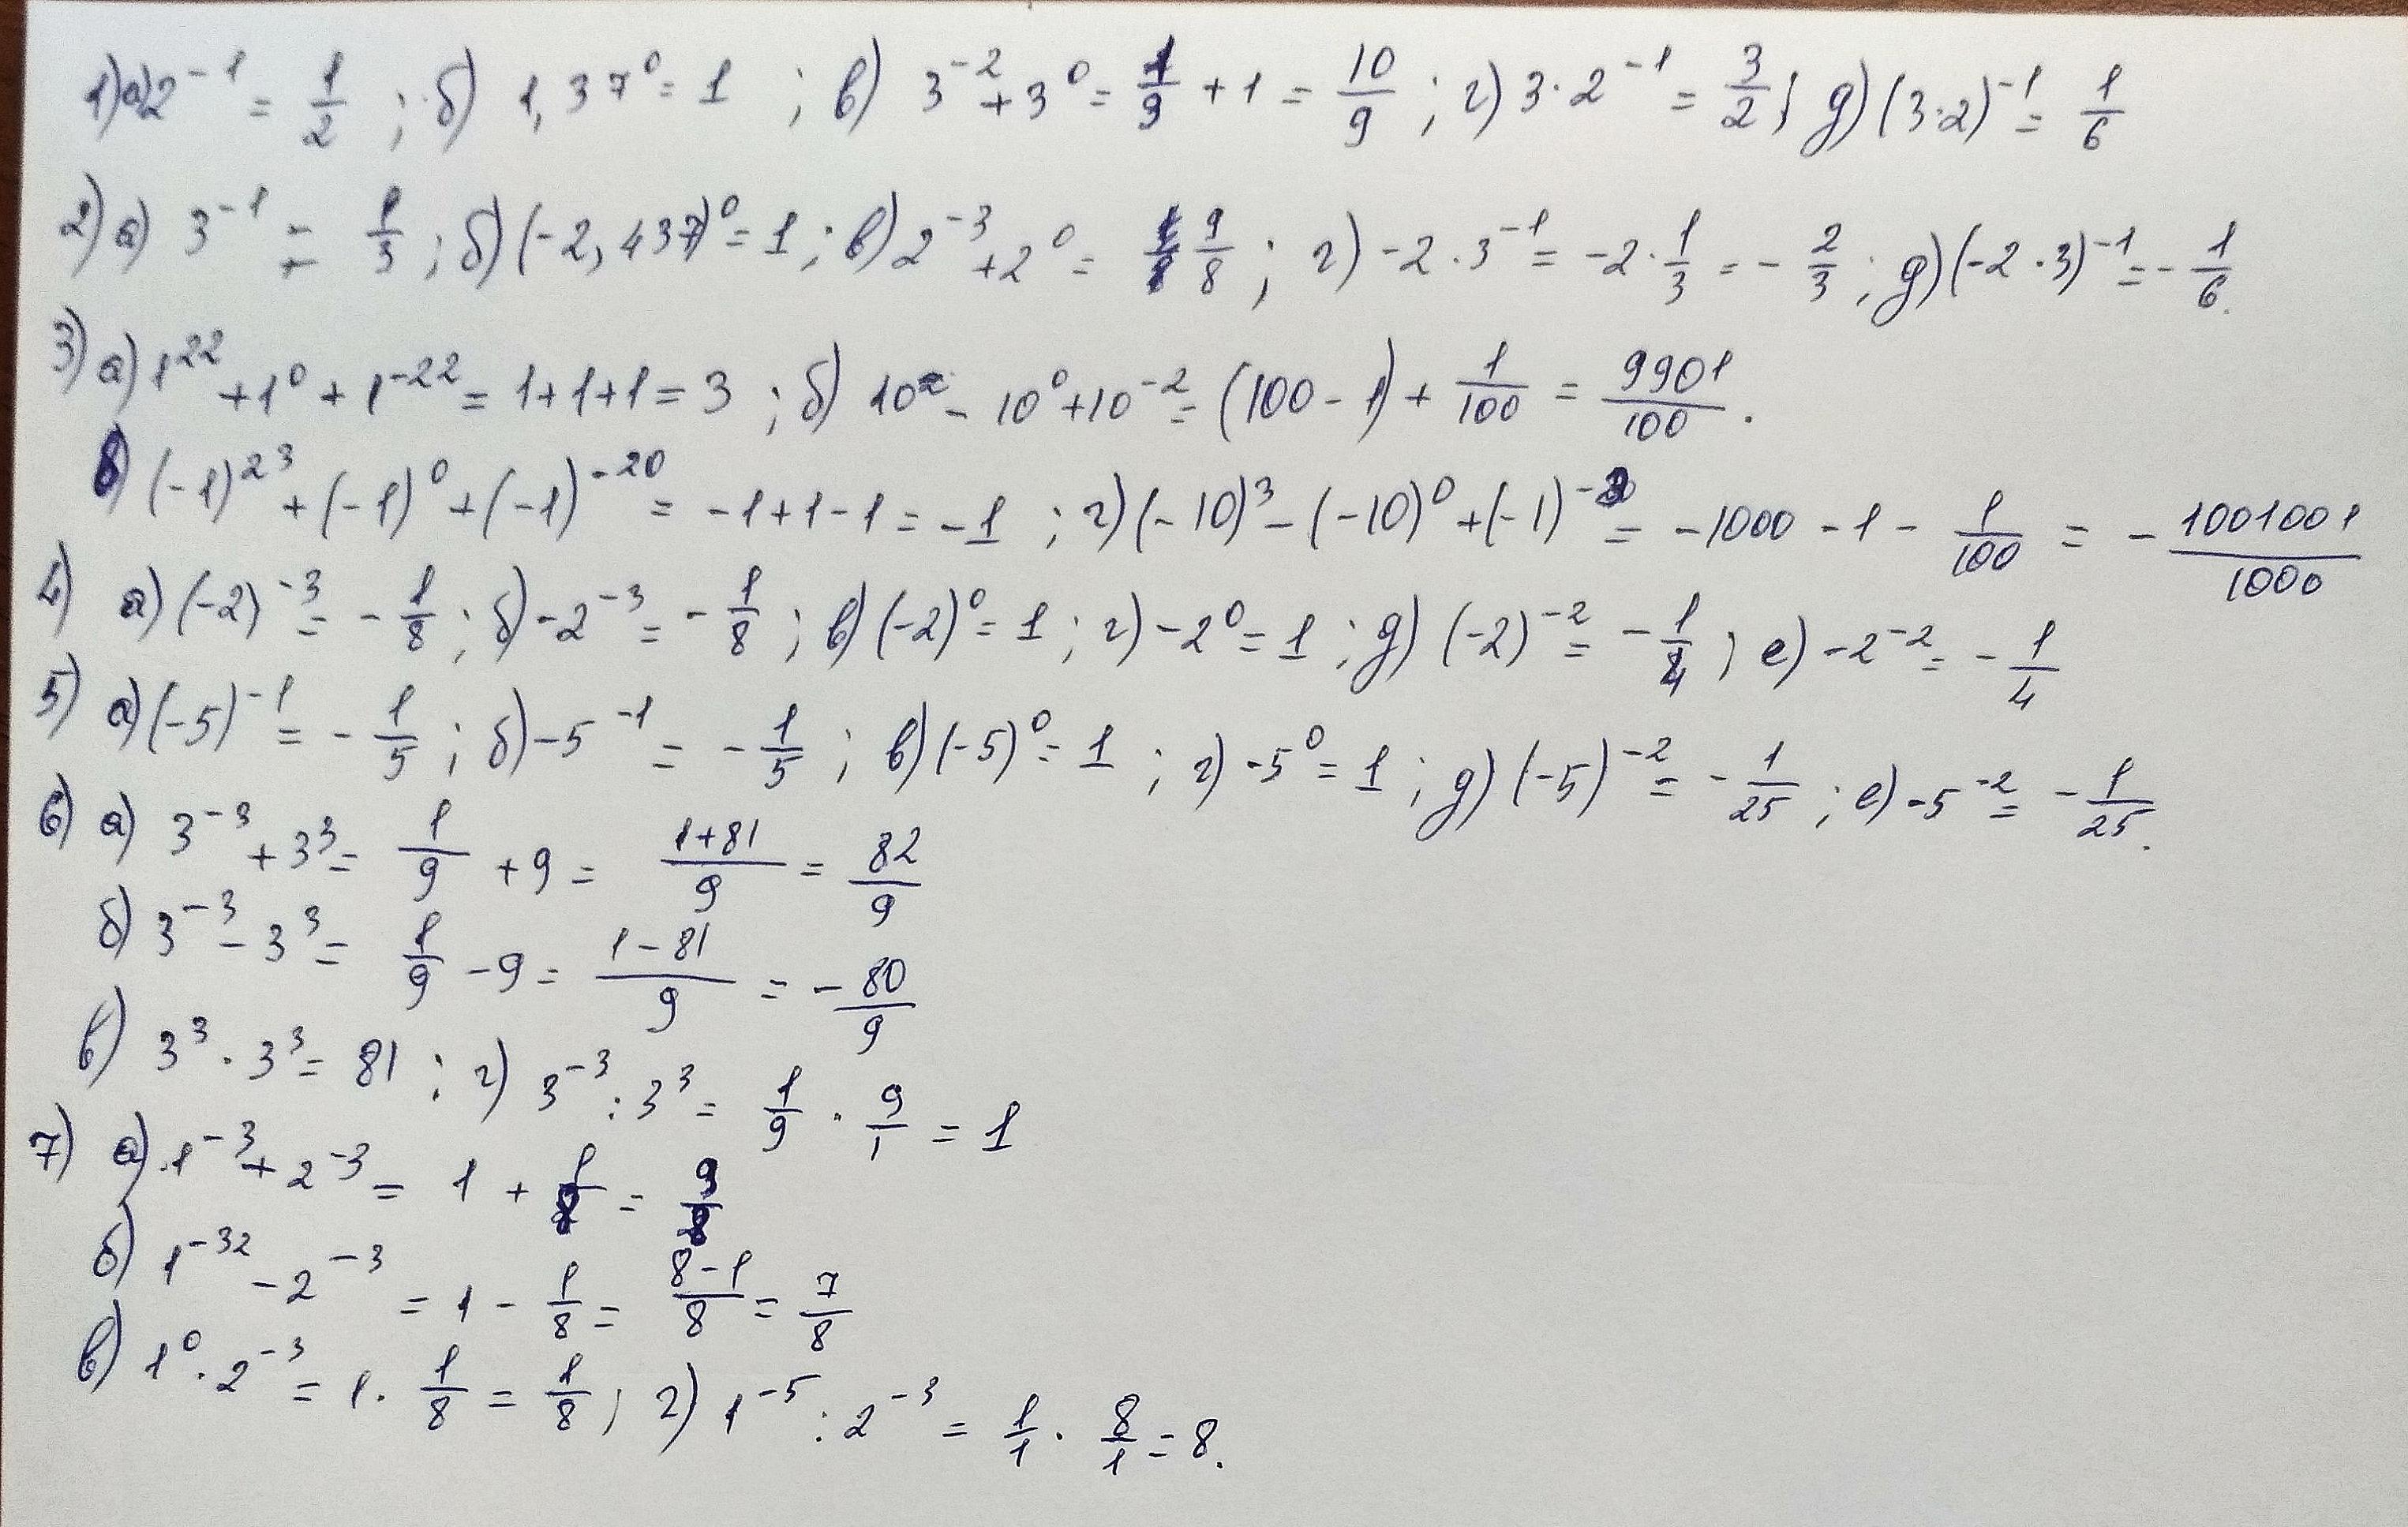 1) а) 2⁻¹ = 1/2 ; б) 1,37⁰ = 1 ; в) 3⁻² + 3⁰ = 1/9 + 1 = 10/9 ; г) 3·2⁻¹ = 3/2 ; д) (3·2)⁻¹ = 1/6
2) а) 3⁻¹ = 1/3 ; б) (-2,437)⁰ = 1 ; в) 2⁻³ + 2⁰ = 9/8 ; г) -2·3⁻¹ = -2·1/3 = -2/3 ; д) (-2·3)⁻¹ = -1/6.
3) а) 1²² + 1⁰ + 1⁻²² = 1+1+1 = 3 ; б) 10² - 10⁰ + 10⁻² = (100 - 1) + 1/100 = 9901/100.
в) (-1)²³ + (-1)⁰ + (-1)⁻²⁰ = -1+1-1 = -1 ; г) (-10)³ - (-10)⁰ + (-1)⁻ = -1000 - 1 - 1/100 = -1001001/1000
4) а) (-2)⁻³ = -1/8 ; б) -2⁻³ = -1/8 ; в) (-2)⁰ = 1 ; г) -2⁰ = 1 ; д) (-2)⁻² = -1/4 ; е) -2⁻² = -1/4
5) а) (-5)⁻¹ = -1/5 ; б) -5⁻¹ = -1/5 ; в) (-5)⁰ = 1 ; г) -5⁰ = 1 ; д) (-5)⁻² = -1/25 ; е) -5⁻² = -1/25.
6) а) 3⁻³ + 3³ = 1/9 + 9 = (1+81)/9 = 82/9
б) 3⁻³ - 3³ = 1/9 - 9 = (1-81)/9 = -80/9
в) 3³ · 3³ = 81 ; г) 3⁻³ : 3³ = 1/9 · 9/1 = 1
7) а) 1⁻³ + 2⁻³ = 1 + 1/8 = 9/8
б) 1⁻³² - 2⁻³ = 1 - 1/8 = (8-1)/8 = 7/8
в) 1⁰ · 2⁻³ = 1 · 1/8 = 1/8 ; г) 1⁻⁵ : 2⁻³ = 1/1 · 8/1 = 8.